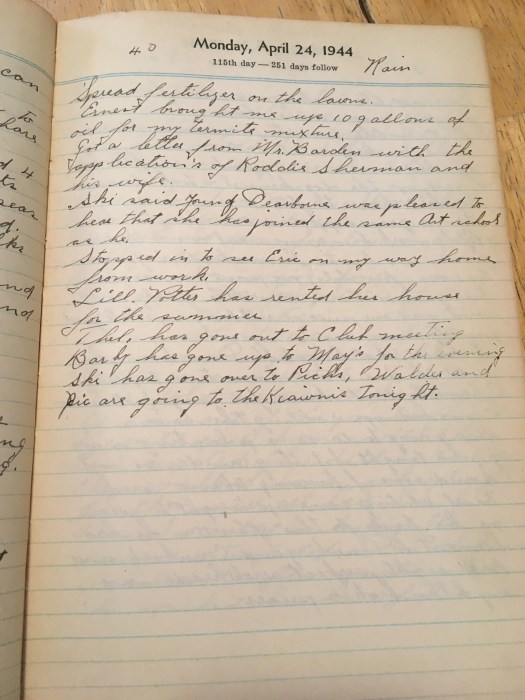 can
to
share
d 4
ts
year
d.
ke
nd
nd
ng
g.
40 Monday, April 24, 1944 Rain
115th day — 251 days follow
Spread fertilizer on the lawns.
Ernest brought me up 10 gallons of
oil for my termite mixture.
Got a letter from Mr. Barden with the
application's of Roddie Sherman and
his wife.
Ski said Young Dearborne was pleased to
hear that she has joined the same Art school
as he.
Stopped in to see Eric on my way home
from work.
Lill. Potter has rented her house
for the summer
Thel, has gone out to Club meeting
Barby has gone up to May's for the evening
Ski has gone over to Picks, Waldie and
Pic are going to the Kiawnis tonight.